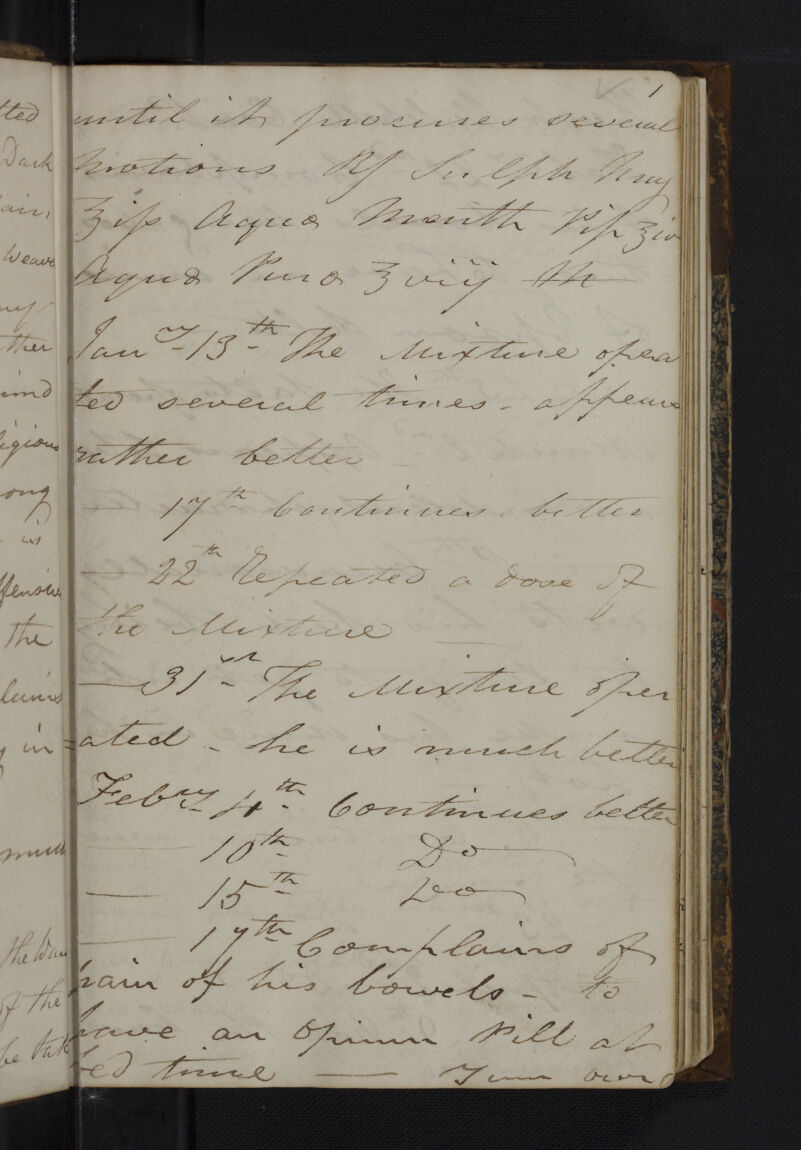 1
until it procures several
motions Rf Sulph Mag
ʒifs Aqua Menth Pip ʒiv
Aqua Pura ʒviij M
Jany 13th The Mixture opera
ted several times - appears
rather better
— 17th Continues better
— 22th Repeated a dose of
the Mixture —
— 31st The Mixture oper
=ated - he is much better
Feby 4th Continues better
— 10th Do
— 15th Do
— 17th Complains of
pain of his bowels - to
have an Opium Pill at
bed time — Turn over
tted
Dark
ther
is
the
in
much
of the